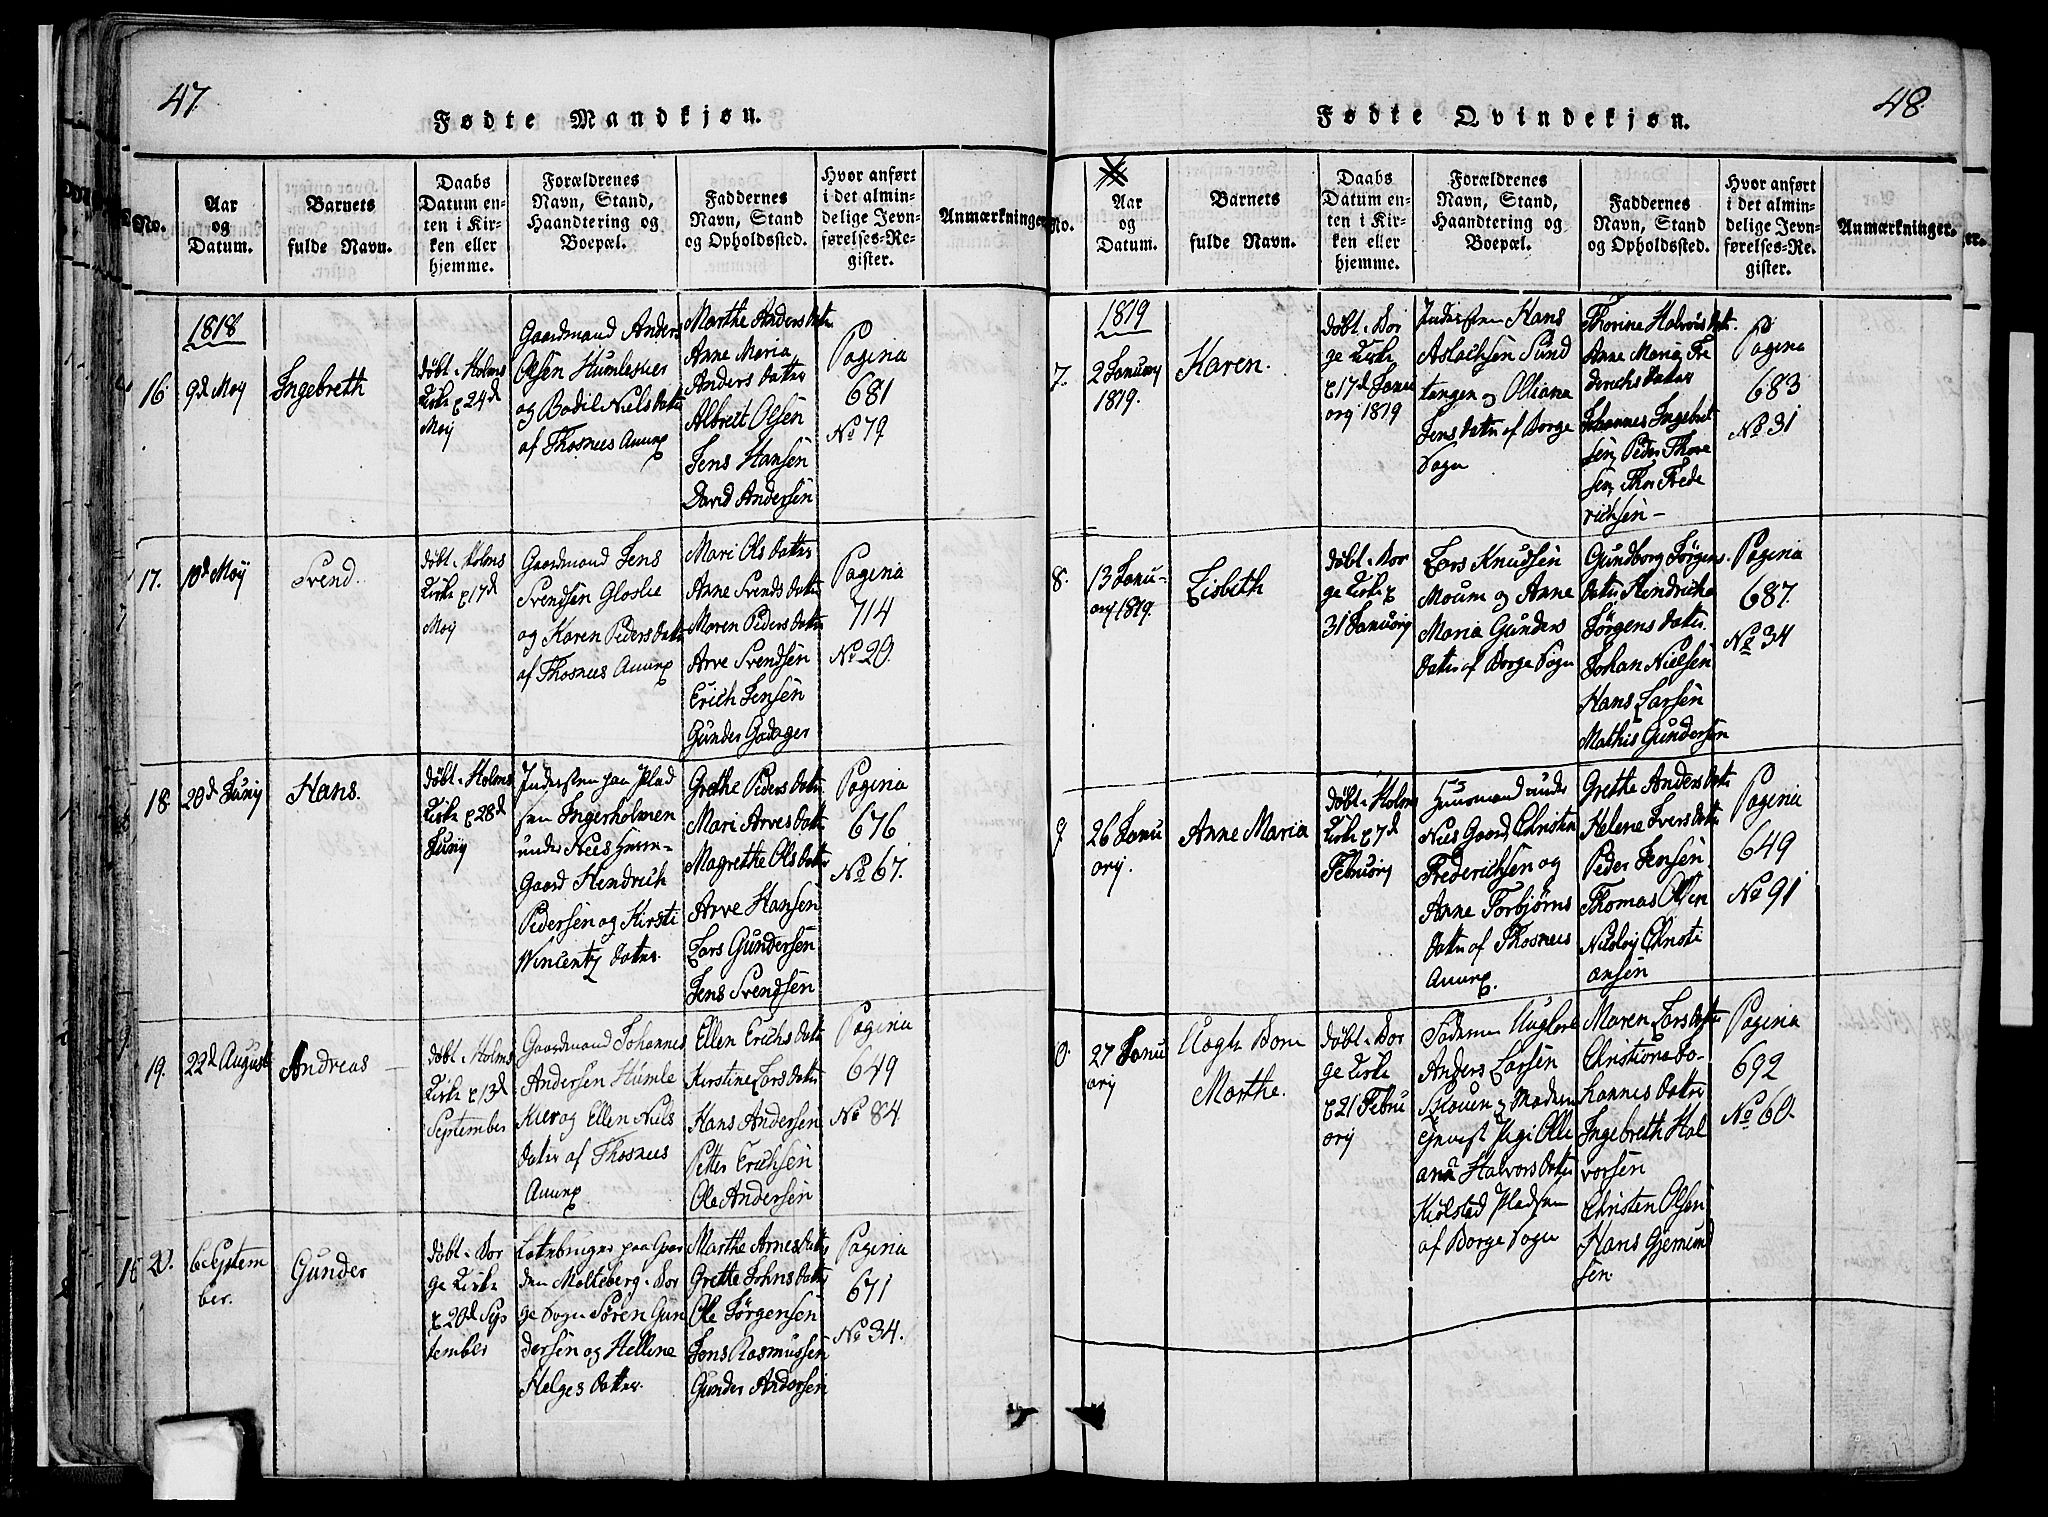 47.
Fødte Mandkjøn.
No.
Aar
og
Datum.
Barnets
fulde Navn.
Daabs
Datum en-
ten i Kir-
ken eller
hjemme.
Forældrenes
Navn, Stand,
Haandtering og
Boepæl.
Faddernes
Navn, Stand
og Opholdssted.
Hvor anført
i det almin-
delige Jevn-
førelses-Re-
gister.
Anmærkninger
1818
16.
9d Maij
Ingebreth
døbt i Holms
Kirke
24d
Maij
Gaardmand Anders
Olsen Humlekier
og Bodil Niels datter
af Thosnees Annex
Marthe Anders datter
Anne Maria
Anders datter
Albrett Olsen
Jens Hansen
David Andersen
Pagina
681
No 79
17.
10d Maij
Svend.
døbt i Holms
Kirke
17d
Maij
Gaardmand Jens
Svendsen Gloslie
og Karen Peders datter
af Thosnees Annex
Mari Ols datter
Anne Svends datter
Maren Peders datter
Arve Svendsen
Erich Jensen
Gunder
Pagina
714
No 20.
18
20d Junij
Hans.
døbt i Holms
Kirke
28d
Junij
Indersten paa Plad
sen Ingerholmen
under Nees
Gaard Hendrich
Pedersen og Kirsti
Vincentz datter.
Grethe Peders datter
Mari Arves datter
Magrethe Ols datter
Arve Hansen
Lars Gundersen
Jens Svendsen
Pagina
676
No 67.
19.
22d August
Andreas
døbt i Holms
Kirke
13d
September
Gaardmand Johannes
Andersen Humle
kier og Ellen Niels
datter af Thosnees
Annex
Ellen Erichs datter
Kirstine Lars datter
Hans Andersen
Petter Erichsen
Ole Andersen
Pagina
649
No 84.
20.
6 Septem
ber.
Gunder
døbt i Bor
ge Kirke
20d Sep
tember
paa Gaar
den Molteberg i Bor
ge Sogn Søren Gun
dersen og Hellene
Helges datter.
Marthe Arnes datter
Grette Johns datter
Ole Jørgensen
Jens Rasmussen
Gunder Andersen
Pagina
671
No 34.
48.
Fødte Qvindekjøn.
No.
Aar
og
Datum.
Barnets
fulde Navn.
Daabs
Datum en-
ten i Kir-
ken eller
hjemme.
Forældrenes
Navn, Stand,
Haandtering og
Boepæl.
Faddernes
Navn, Stand
og Opholdssted.
Hvor anført
i det almin-
delige Jevn-
førelses-Re-
gister.
Anmærkninger.
1819
7.
2 Januarij
1819.
Karen.
døbt i Bor
ge Kirke
17d Janu
arij 1819
Indersten Hans
Aslachsen Sund
tangen og Olliana
Jens datter af Borge
Sogn
Thorine Halvors datter
Anne Maria Fre
derichs datter
Johannes Ingebret
sen, Peder Thore
sen, Thor Frede
richsen
Pagina
683
No 31
8.
13 Janu-
arij 1819.
Lisbeth
døbt i Bor
ge Kirke
31 Januarij
Lars Knudsen
Moum og Anne
Maria Gunders
datter af Borge Sogn
Gundborg Jørgens
datter Hendricha
Jørgens datter.
Johan Nielsen
Hans Larsen
Mathis Gundersen
Pagina
687.
No 34
9
26 Janu
arij.
Anne Maria
døbt i Holms
Kirke
7d
Februarij
Huusmand under
Nees Gaard, Christen
Frederichsen og
Anne Torbjørns
datter af Thosnees
Annex.
Grethe Anders datter
Helene Ivers datter
Peder Jensen
Thomas Olsen
Nicolaj Christi
ansen
Pagina
649
No 91
0.
27 Janu
arij
Uægte Barn
Marthe.
døbt i Bor
ge Kirke
21 Febru
arij
Anders Larsen
Halvors datter
Kiølstad Pladsen
af Borge Sogn
Maren Lars datter
Christiana Jo-
hannes datter
Ingebreth Hal
vorsen
Christen Olsen
Hans Gjemund
sen.
Pagina
692
No 60.